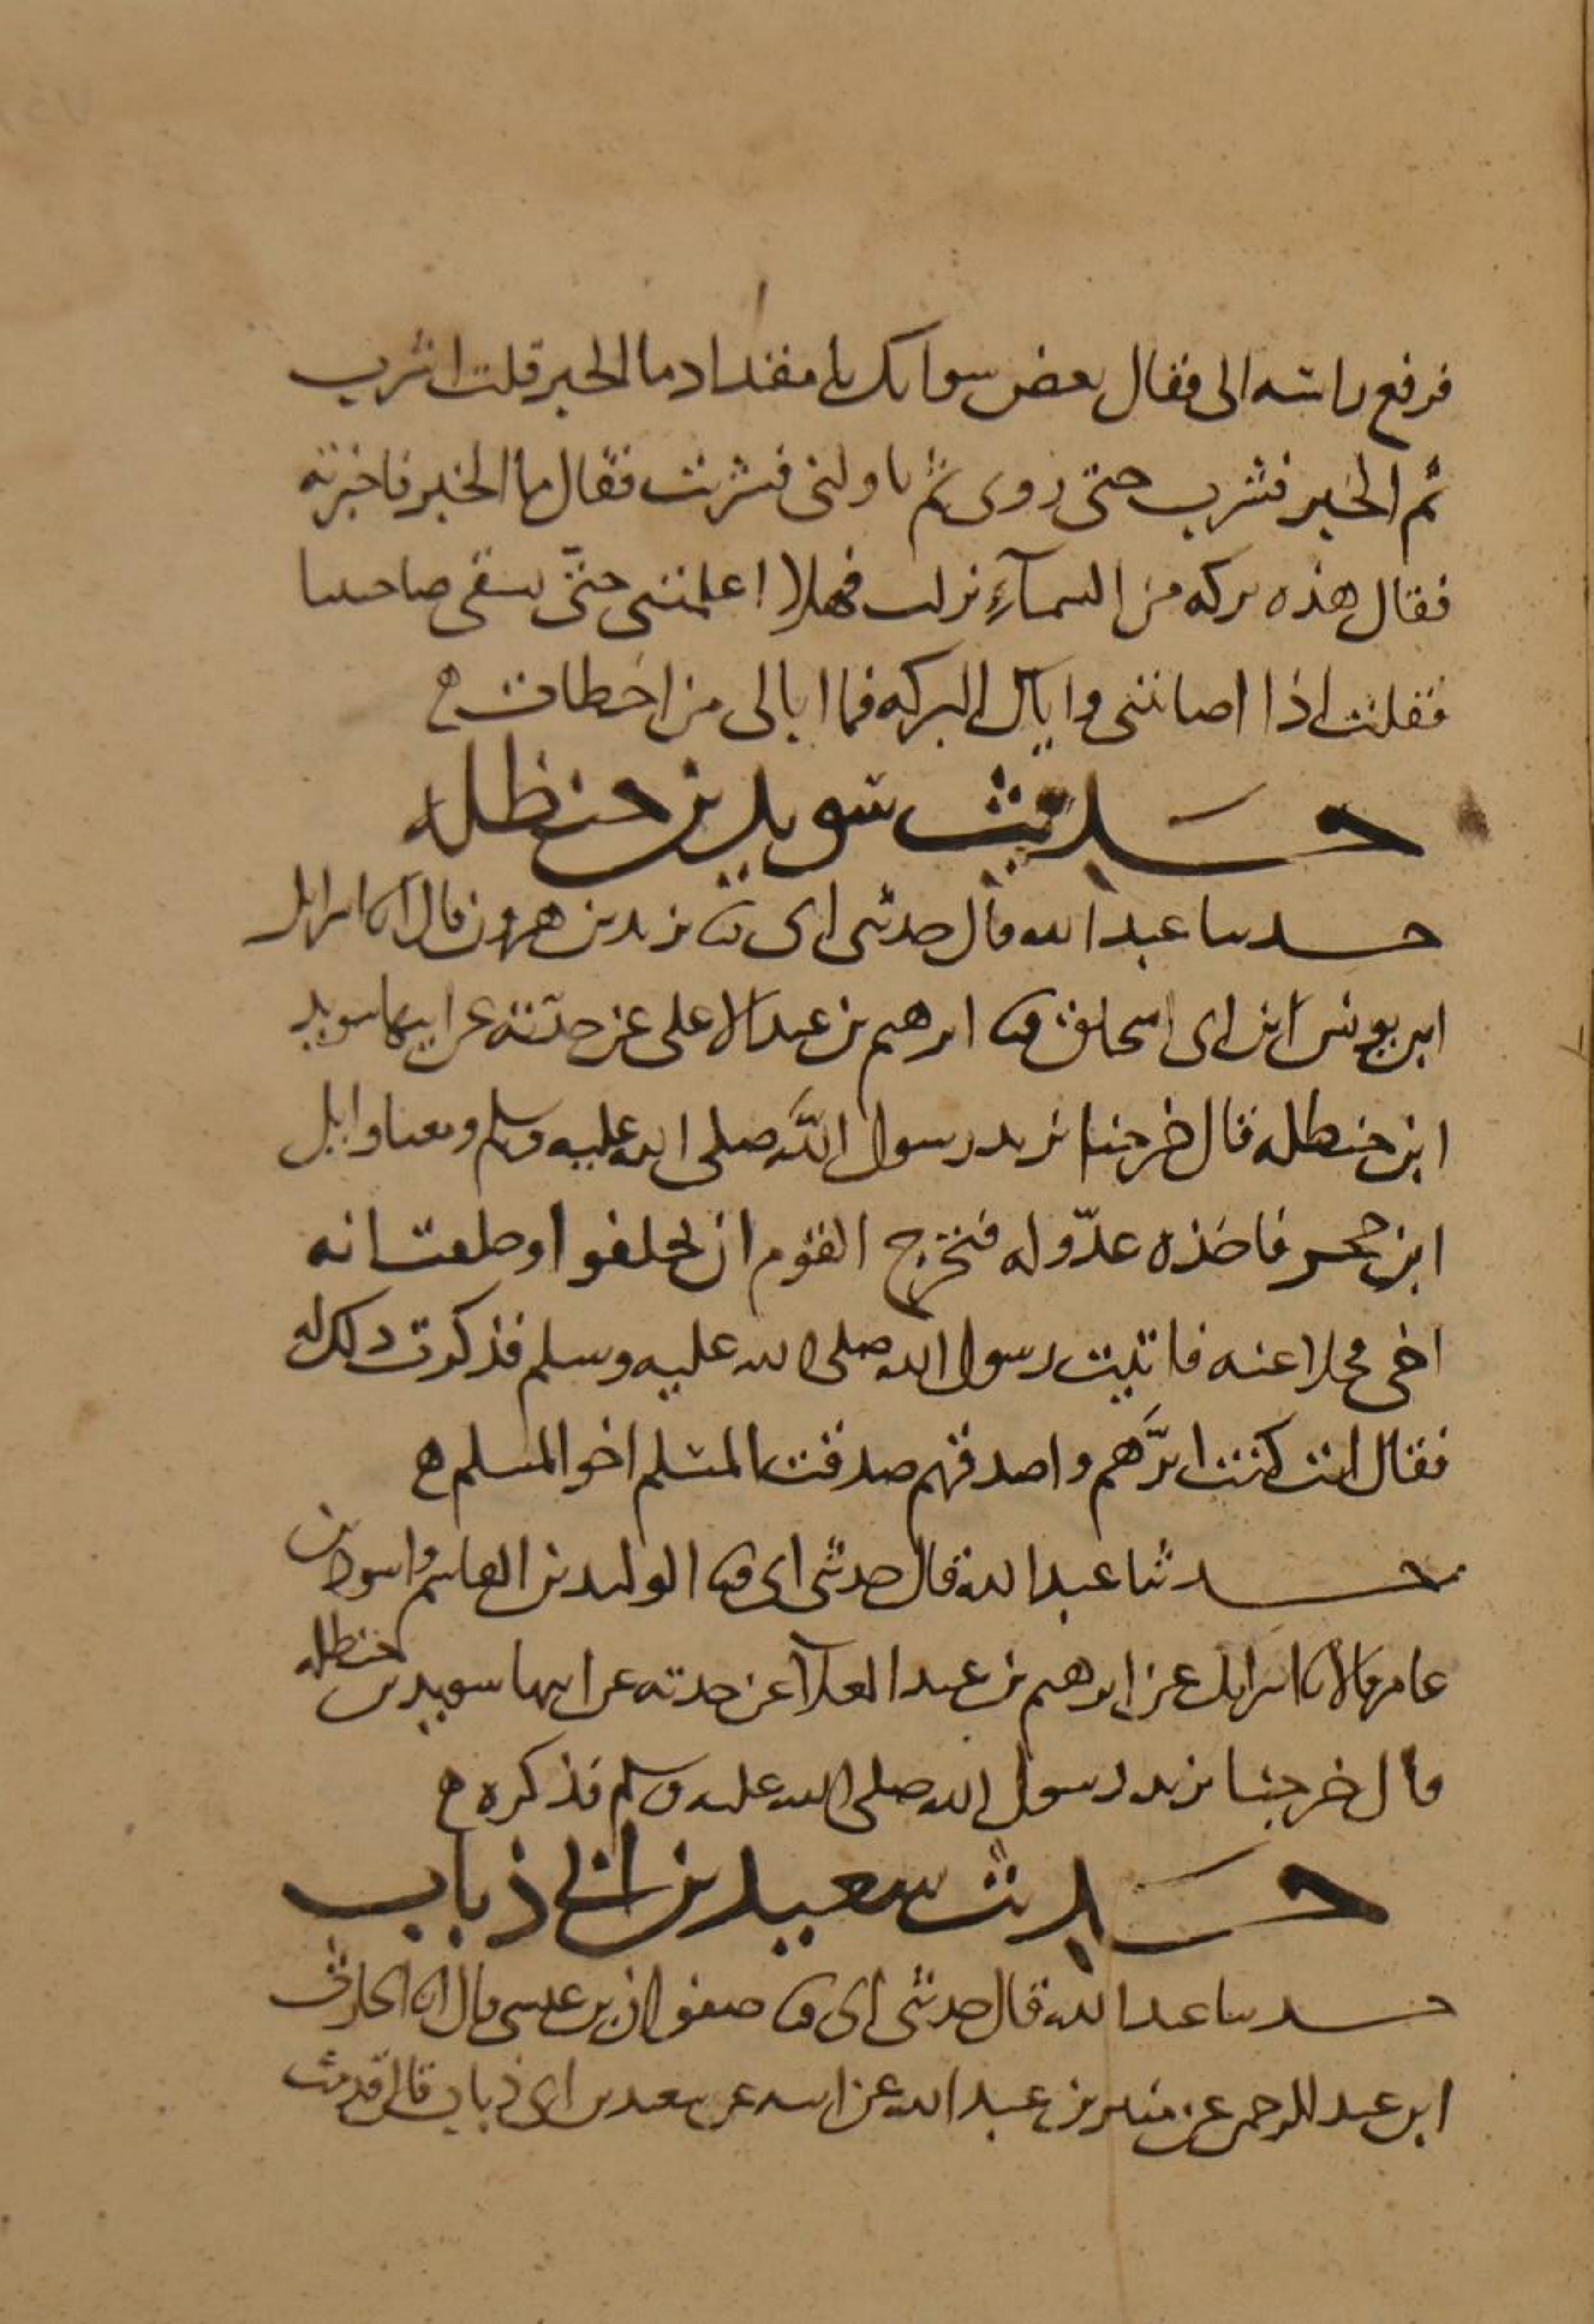 فرفع راسه الى فقال بعض سوا تك يا مقداد ما الخبر قلت اشرب
ثم الخبر فشرب حتى روى ثم ناولنى فشربت فقال ما الخبر فاخبرته
فقال هذه بركه من السمآء نزلت فهلا اعلمتنى حتى نسقى صاحبينا
فقلت اذا اصابتنى واياك البركه فما ابالى من اخطات ه
حديث سويد بن حنظله
حدثنا عبد الله قال حدثنى ابى ثنا يزيد بن هرون قال انا اسرايل
ابن يونس ابن ابى اسحاق ثنا ابرهيم بن عبد الاعلى عن جدته عن ابيها سويد
ابن حنظله قال خرجنا نريد رسول الله صلى الله عليه وسلم ومعنا وايل
ابن حجر فاخذه عدو له فتحرج القوم ان يحلفوا وحلفت انه
اخى فخلا عنه فاتيت رسول الله صلى الله عليه وسلم فذكرت ذلك له
فقال انت كنت ابرهم واصدقهم صدقت المسلم اخو المسلم ه
حدثنا عبد الله قال حدثنى ابى ثنا الوليد بن القاسم واسود بن
عامر قالا نا اسرايل عن ابرهيم بن عبد العلآ عن جدته عن ابيها سويد بن حنظله
قال خرجنا نريد رسول الله صلى الله عليه وسلم فذكره ه
حديث سعيد بن ابى ذباب
حدثنا عبد الله قال حدثنى ابى ثنا صفوان بن عيسى قال انا الحارث
ابن عبد الرحمن عن منير بن عبد الله عن ابيه عن سعد بن ابى ذباب قال قدمت